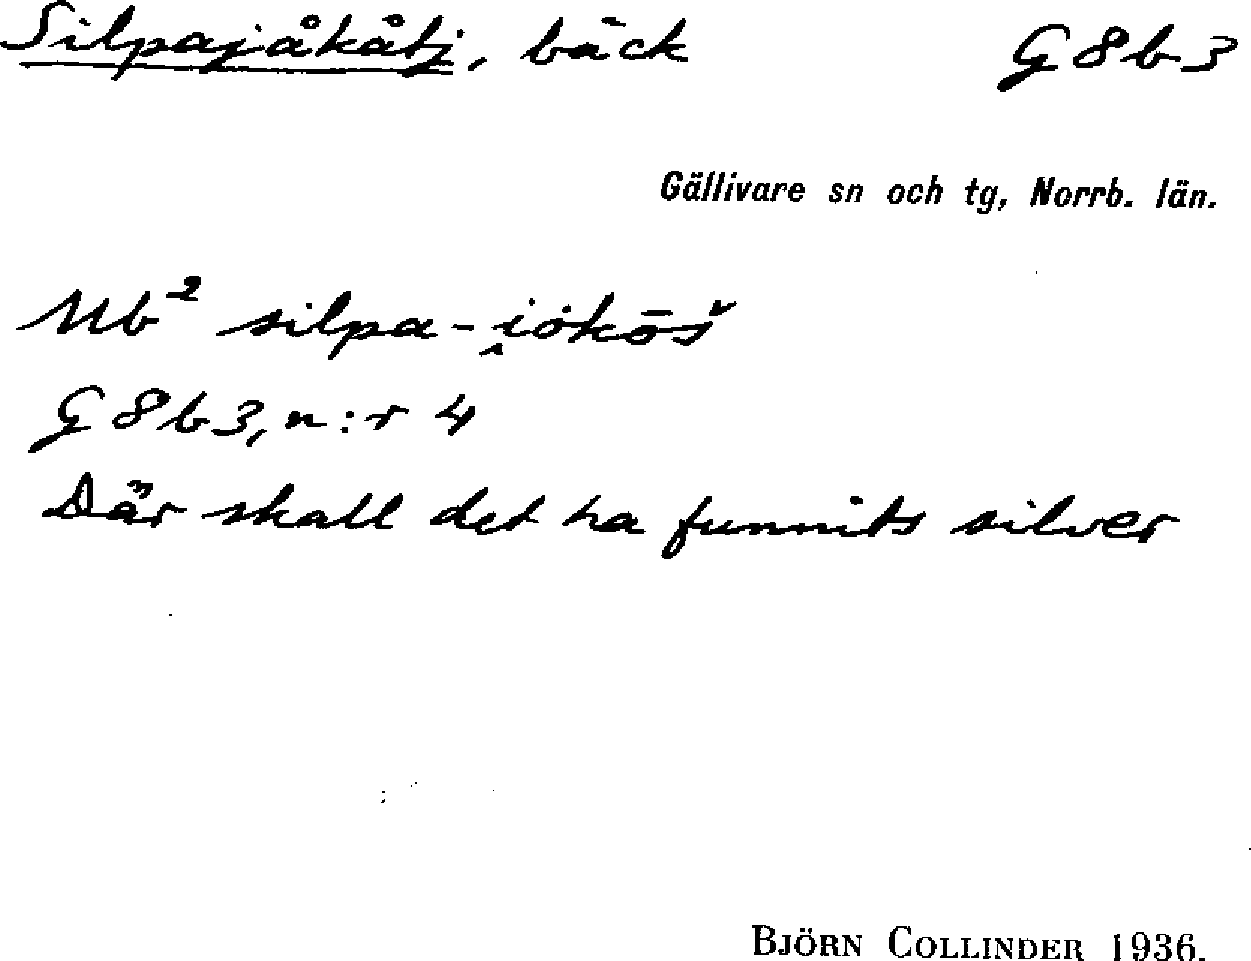 Silpajåkåtj, bäck G8b3
Gällivare sn och tg, Norrb. län.
Nb² silpa-i̯ȯkōš
G8b3, n:r 4
Där skall det ha funnits silver
BJÖRN COLLINDER 1936.